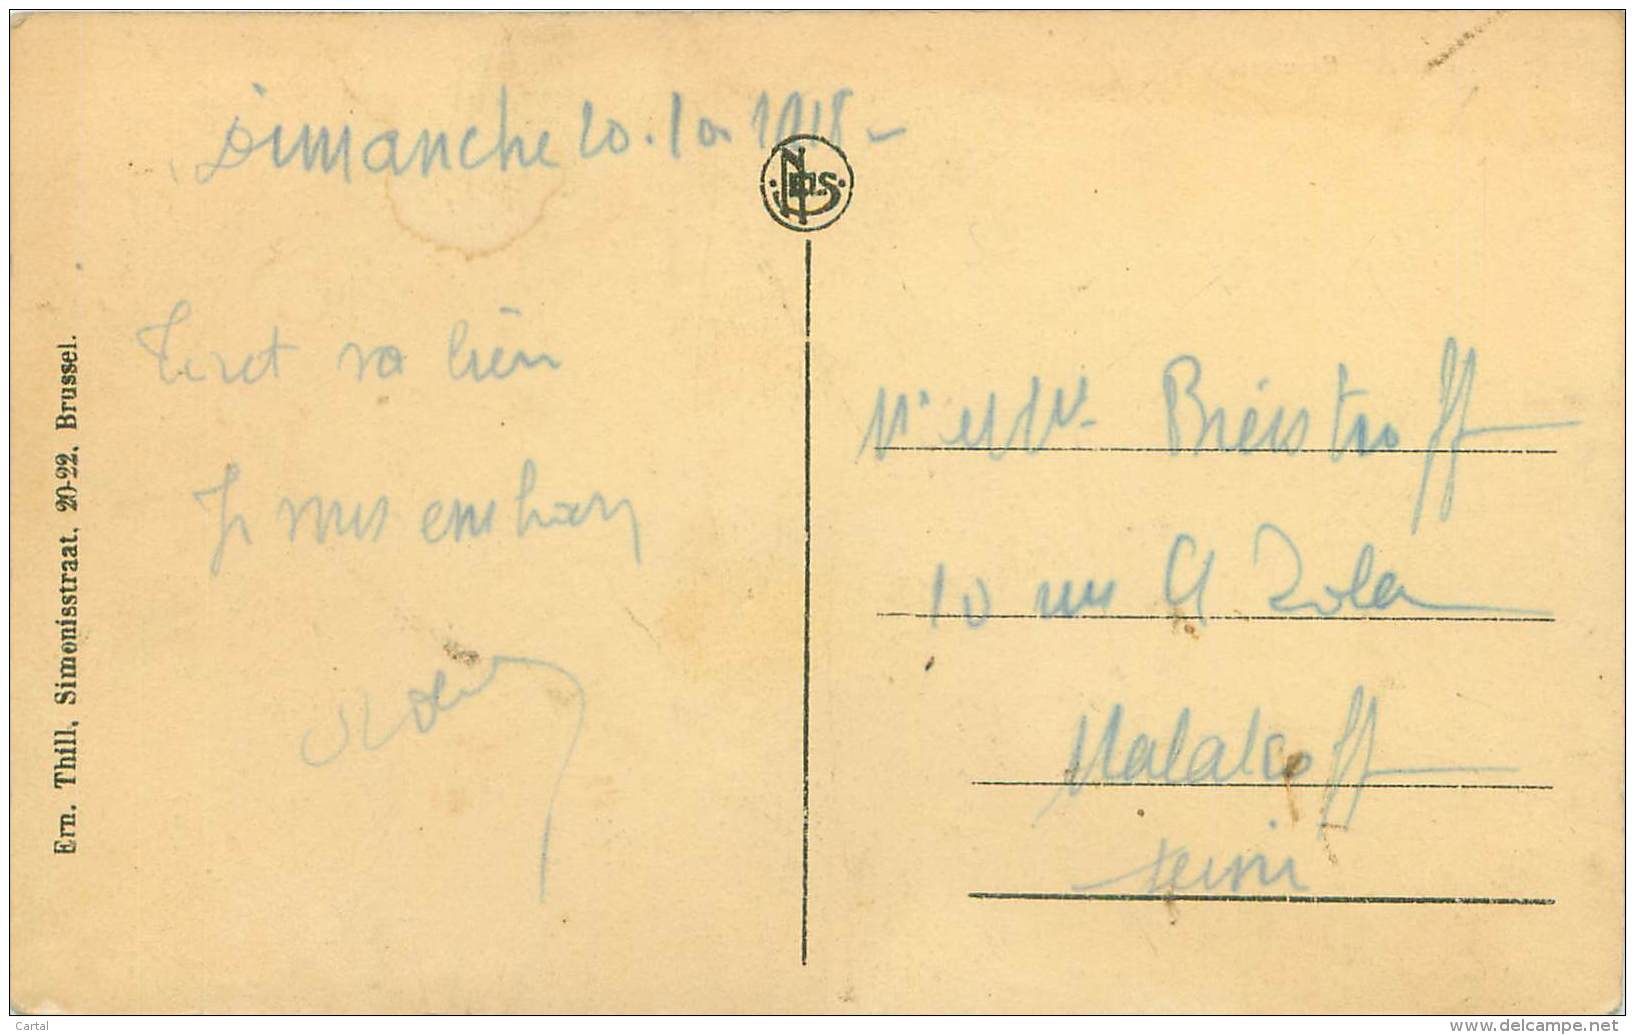 Dimanche 20.10 1918 -
Tout va bien
Je vous embrasse
Ern. Thill, Simonisstraat, 20-22, Brussel.
NELS
Mr et Mme Breistroff
10 rue E Zola
Malakoff
Seine
Cartal
www.delcampe.net